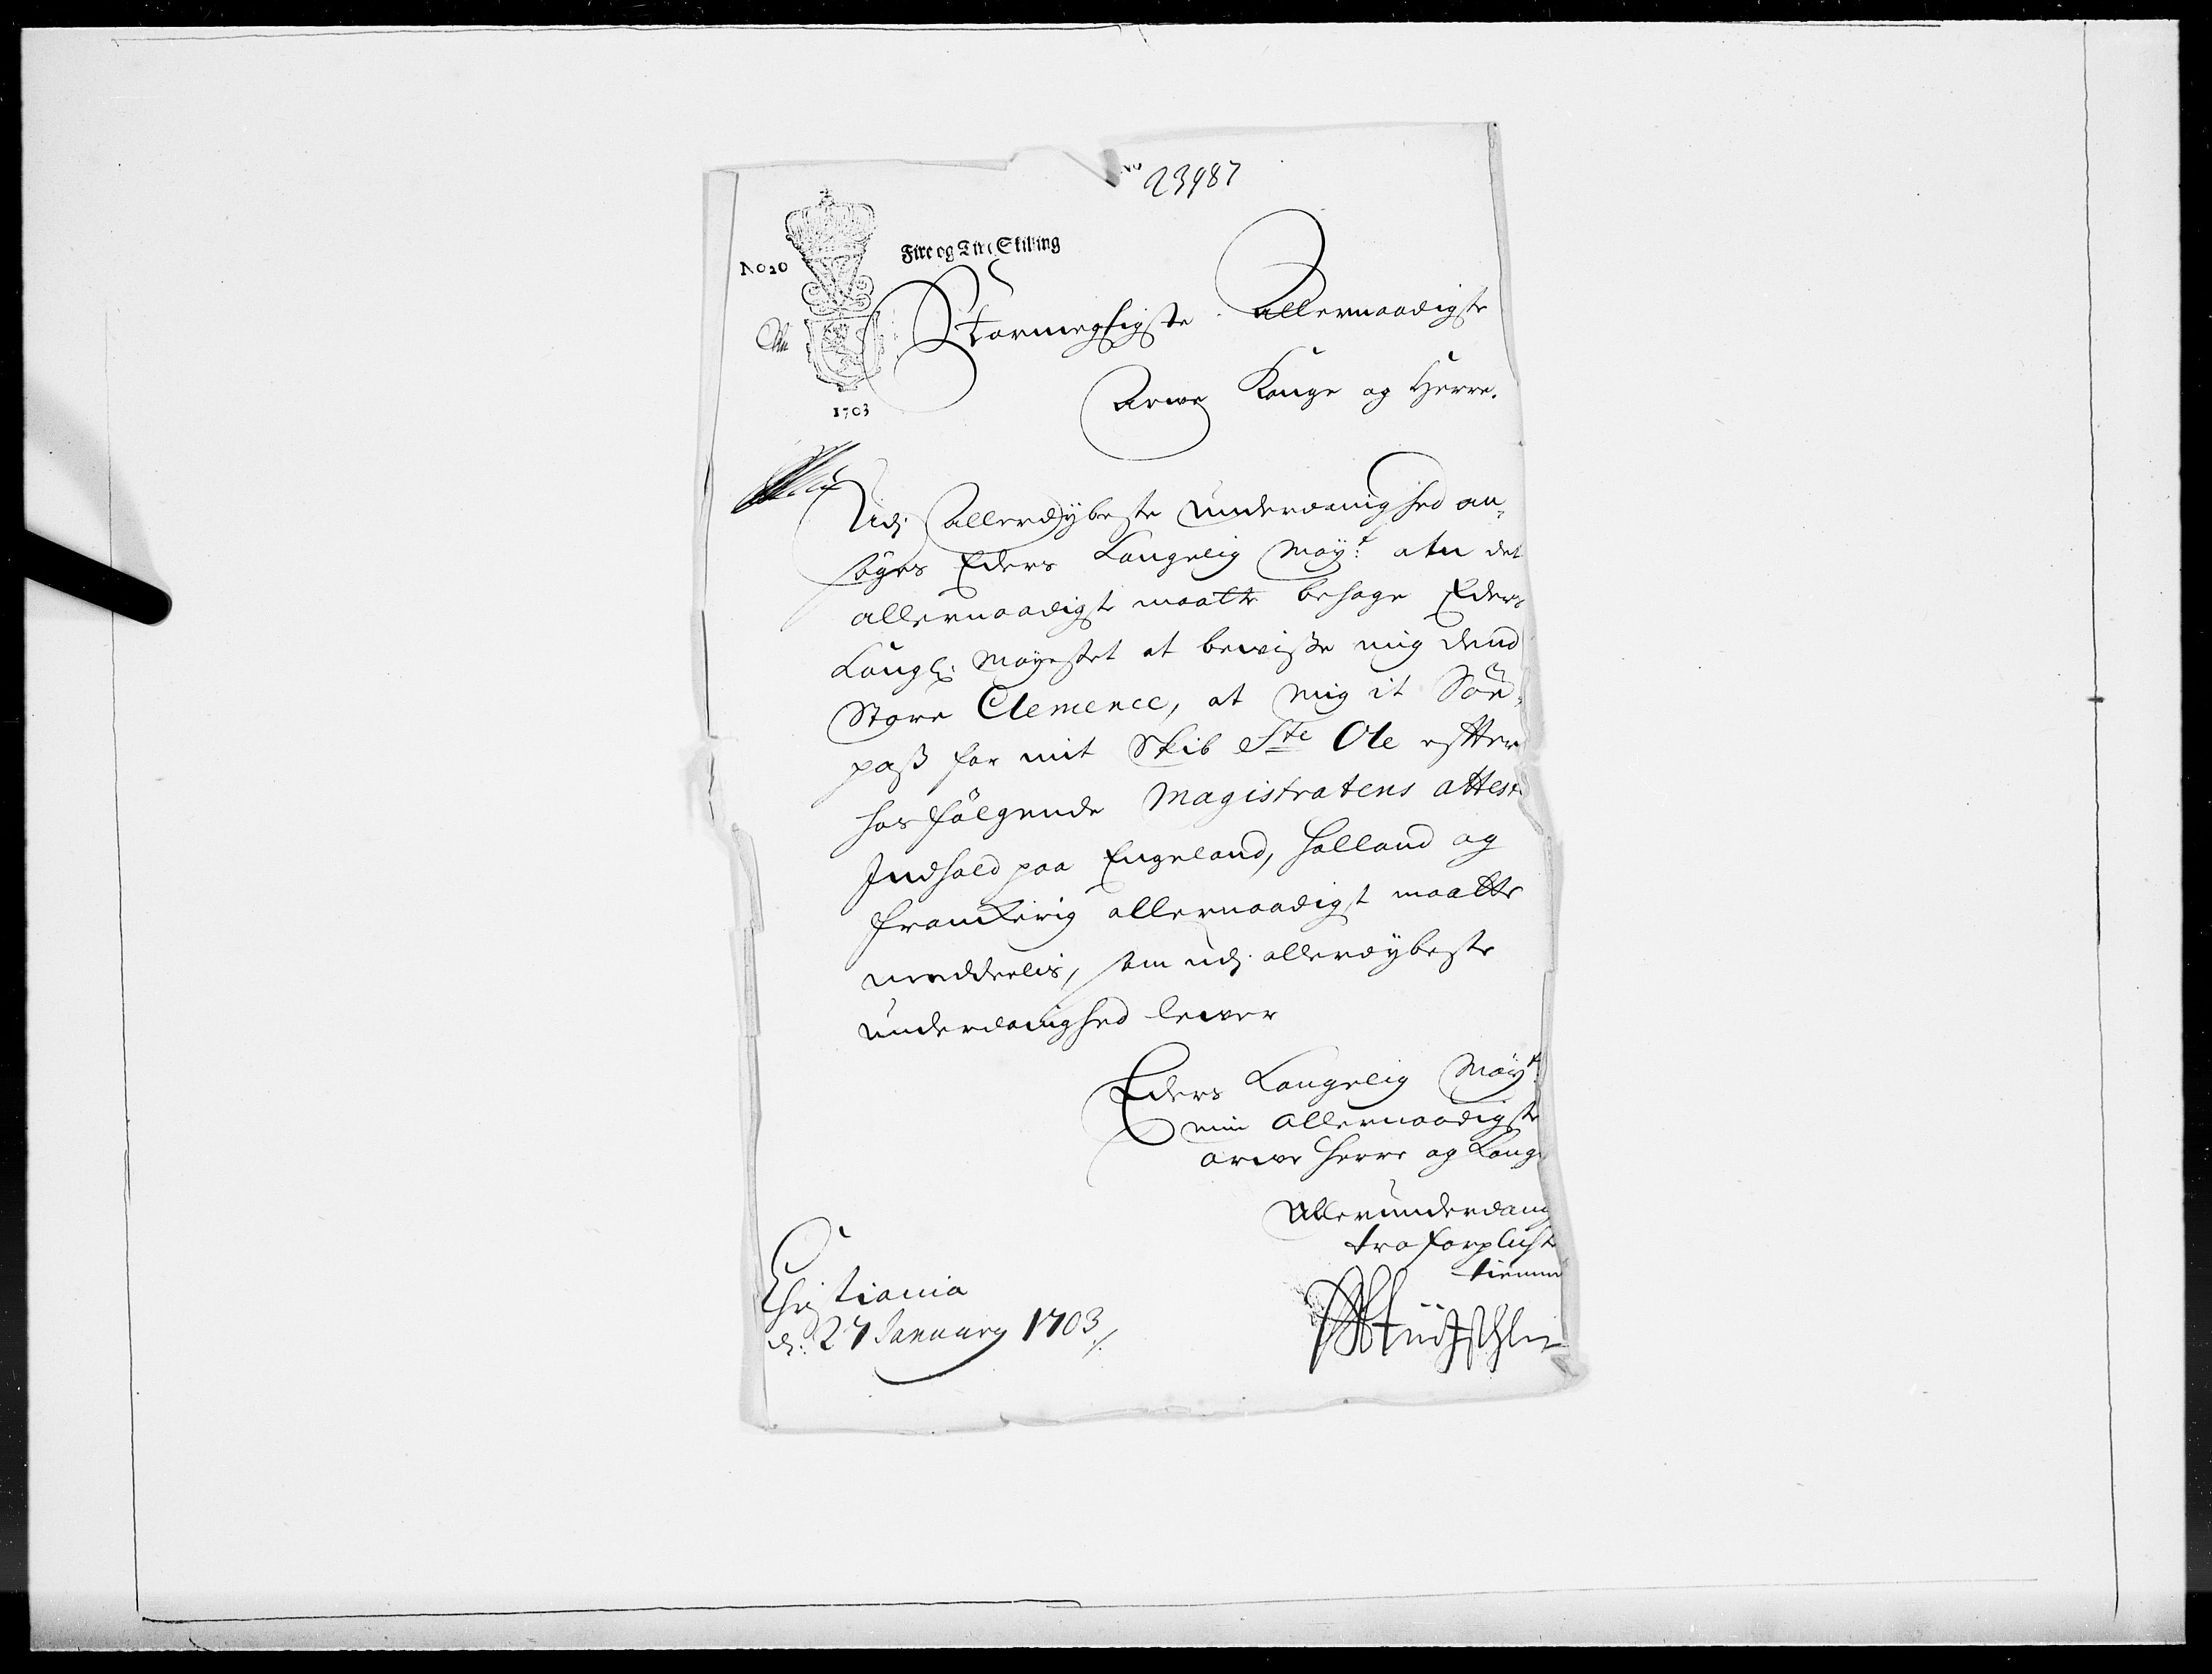 No 23987
No 20
Fire og Tive Skilling
Stormegtigste Allernaadigste
Arwe Konge og Herre.
1703
Udj Allerdybeste underdanighed an¬
søges Eders Kongelig Mayt: atn det
allernaadigst maatte behage Eders
Kongl: Mayestet at bewisse mig dend
Store Clemence, at mig it Söe¬
pass for mit Skib Ste Ole efter
hosfølgende Magistratens attest
Indhold paa Engeland, Holland og
Franckerig allernaadigst maatte
meddeelis, som udj allerdybeste
underdanighed lewer
Eders Kongelig Mayt:
min allernaadigste
arwe Herre og Konge
Allerunderdanig
tro forpligt
tienner
Christiania
d: 27 January 1703